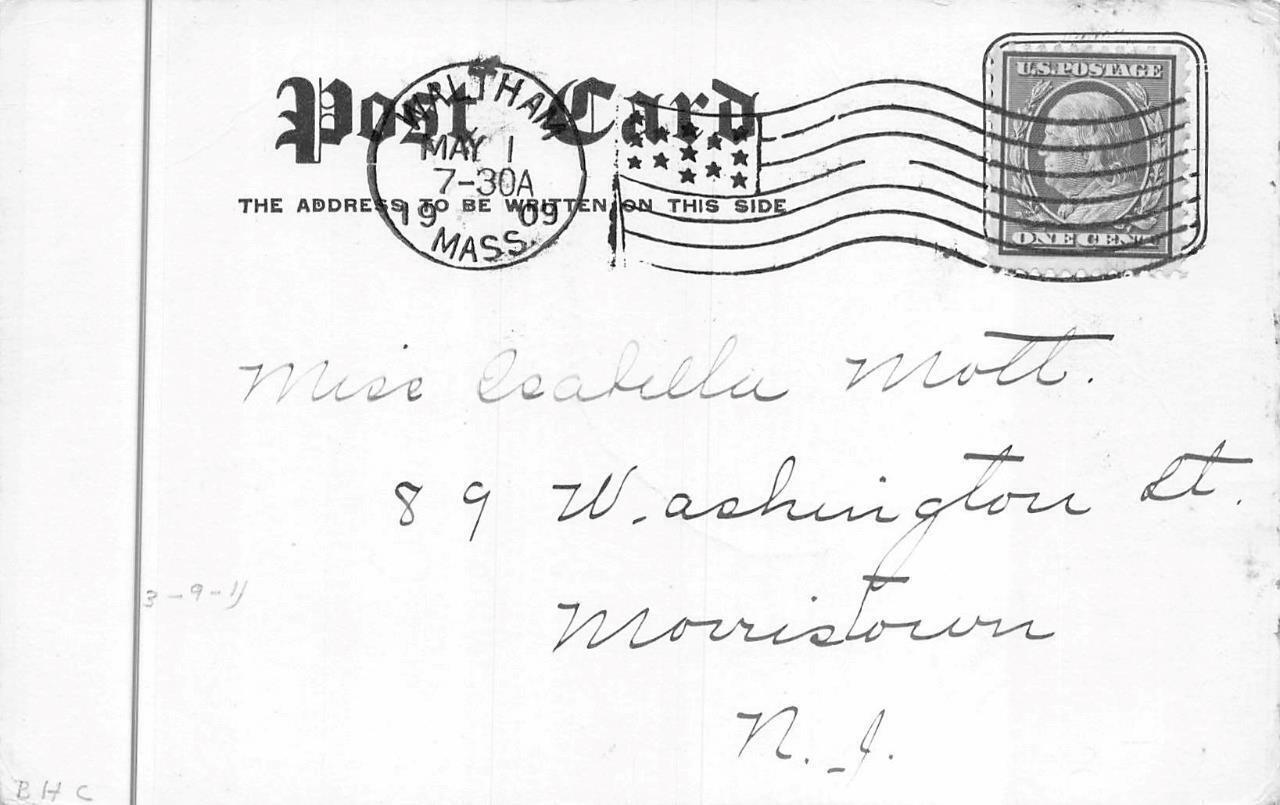 Post Card
THE ADDRESS TO BE WRITTEN ON THIS SIDE
WALTHAM
MAY 1
7-30A
19 09
MASS.
U.S. POSTAGE
ONE CENT
Miss Isabella Mott.
89 Washington St.
Morristown
N. J.
3-9-11
BHC